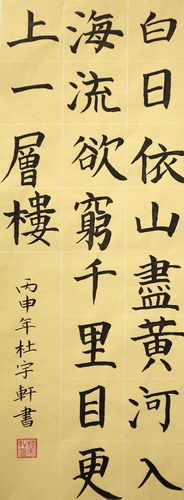 白日依山盡黃河入
海流欲窮千里目更
上一層樓
丙申年杜字軒書